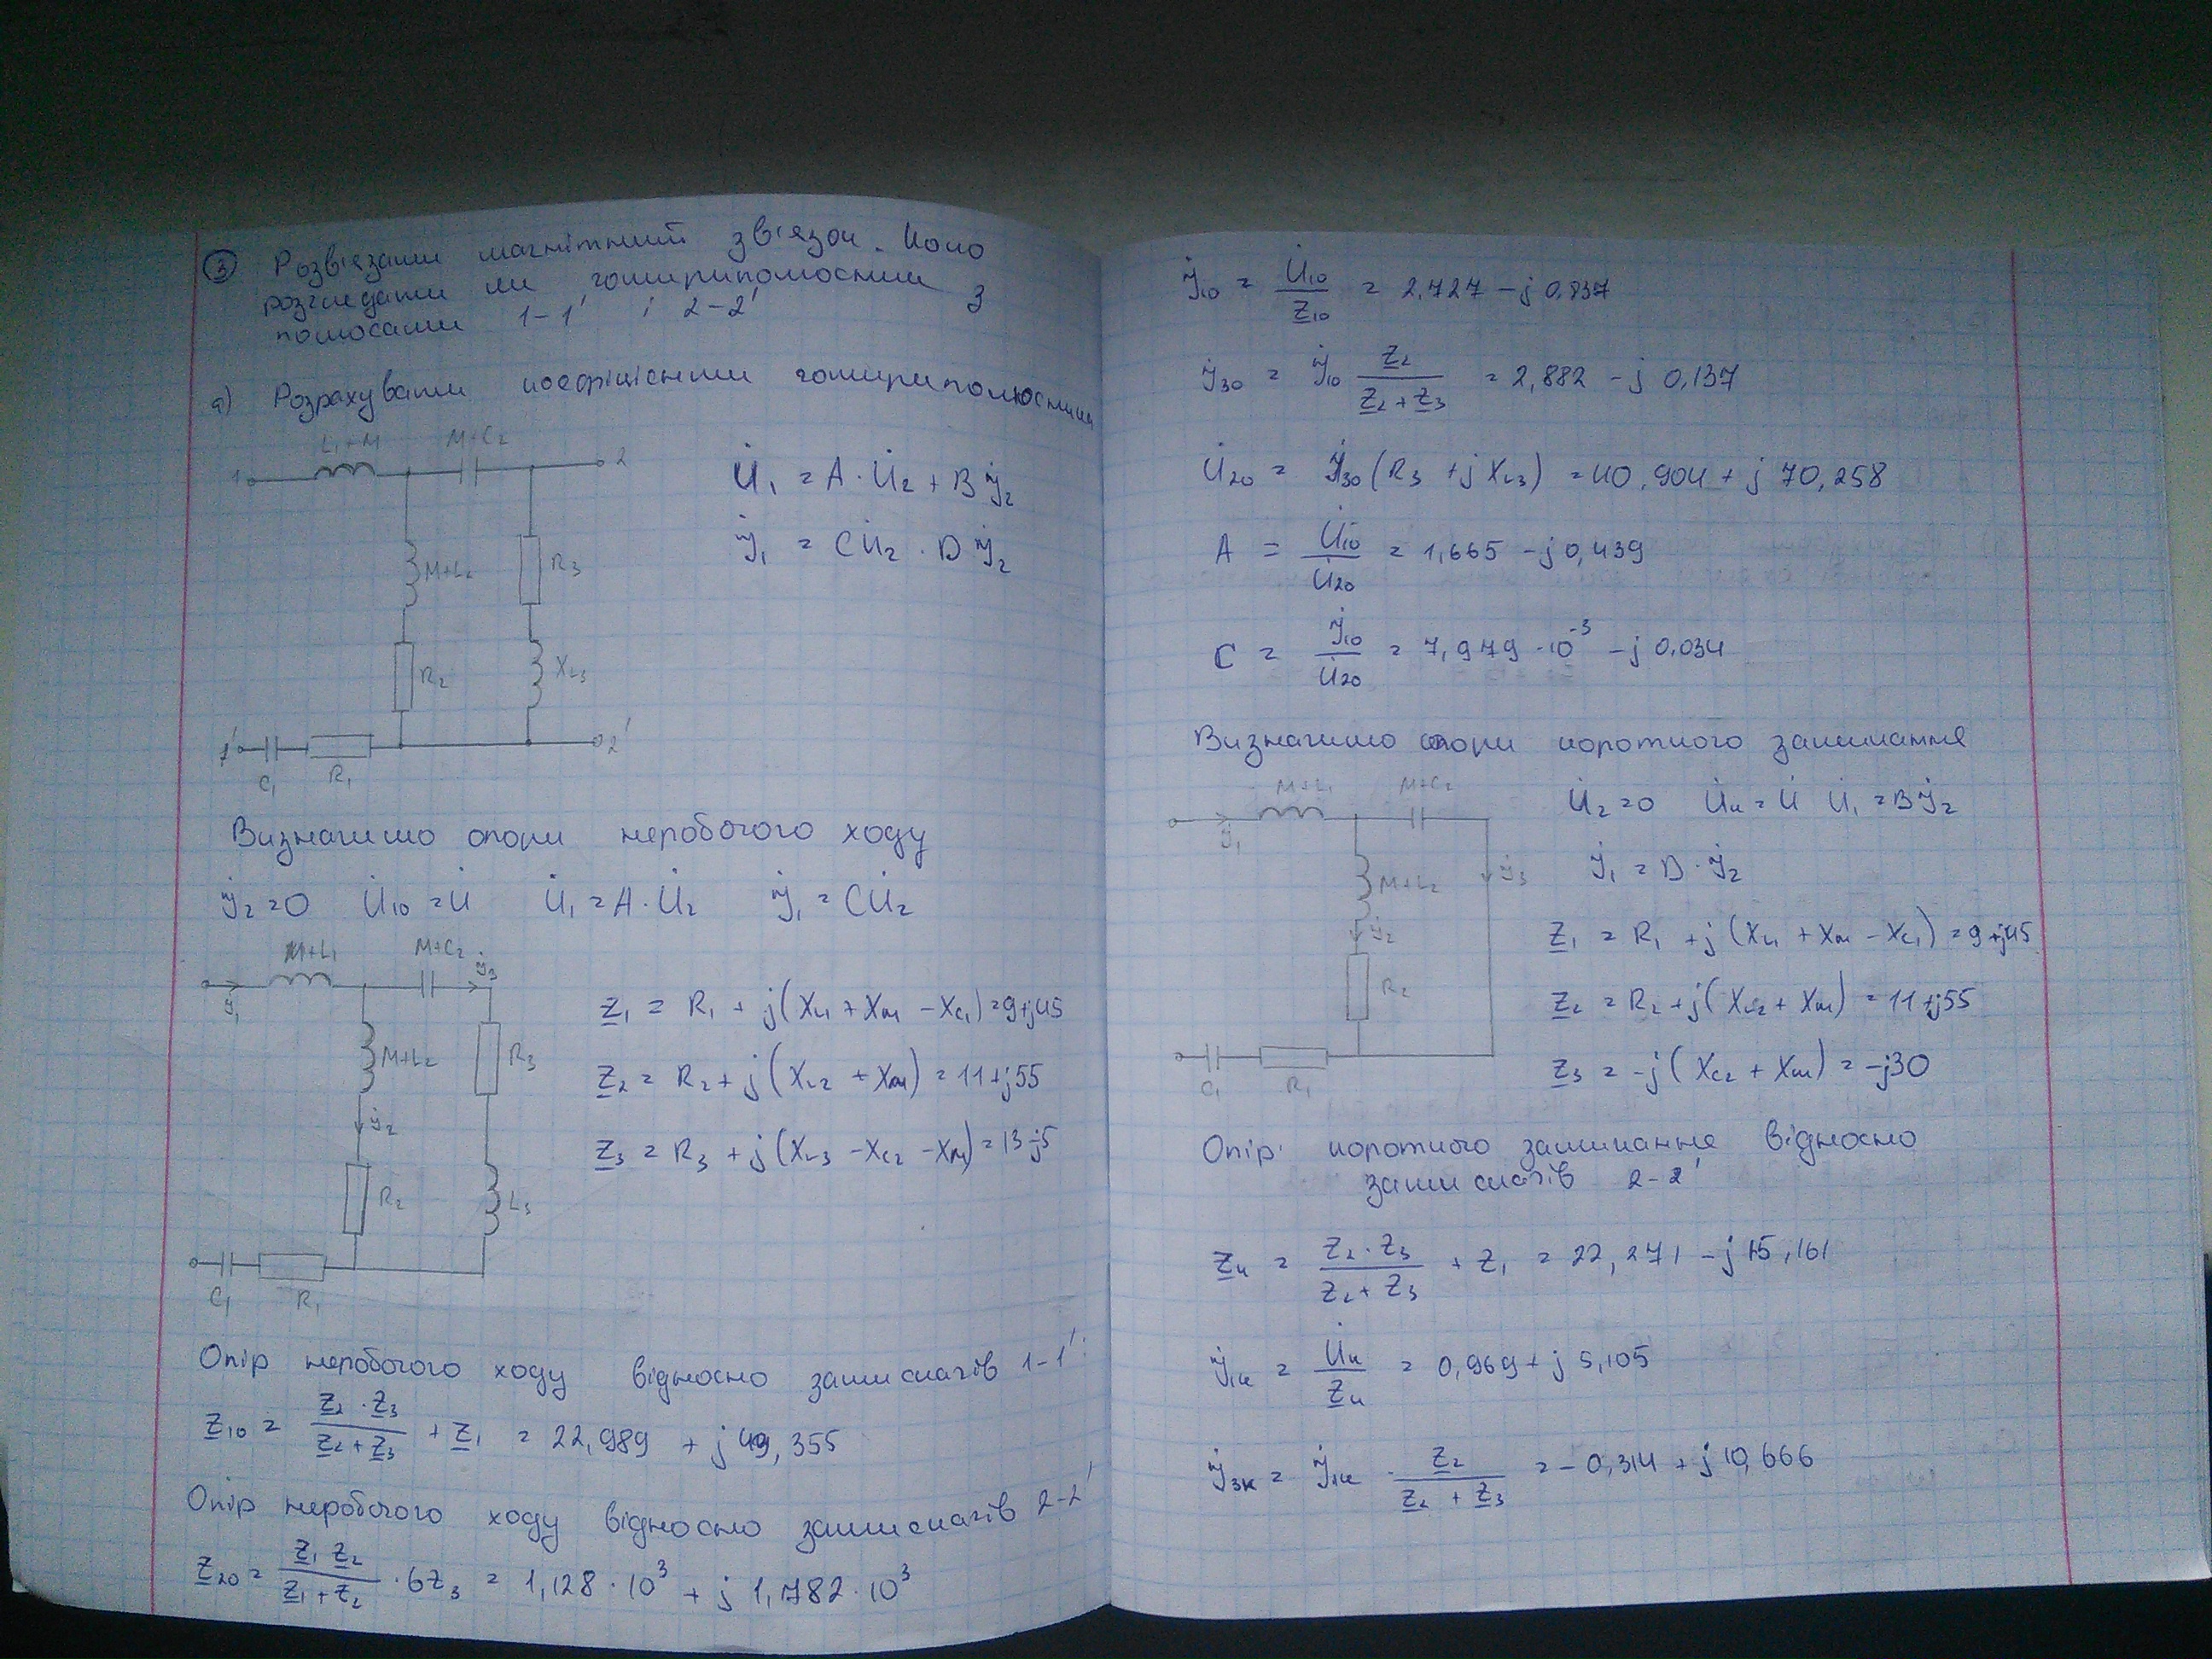 ③ Розв'язати магнітний зв'язок. Коло
розглядати як чотириполюсник з
полюсами 1-1' і 2-2'
а) Розрахувати коефіцієнти чотириполюсника
L₁+M M+C₂
1 2
M+L₂ R₃
R₂ XL₃
1' 2'
C₁ R₁
U̇₁ = A·U̇₂ + Bİ₂
İ₁ = CU̇₂ · Dİ₂
Визначимо опори неробочого ходу
İ₂=0 U̇₁₀=U̇ U̇₁=A·U̇₂ İ₁=CU̇₂
M+L₁ M+C₂ İ₃
İ₁
M+L₂ R₃
İ₂
R₂ L₃
C₁ R₁
Z₁ = R₁ + j(XL₁ + Xм - Xc₁) = 9+j45
Z₂ = R₂ + j(XL₂ + Xм) = 11+j55
Z₃ = R₃ + j(XL₃ - Xc₂ - Xм) = 13-j5
Опір неробочого ходу відносно затискачів 1-1':
Z₁₀ = Z₂·Z₃/(Z₂+Z₃) + Z₁ = 22,989 + j49,355
Опір неробочого ходу відносно затискачів 2-2'
Z₂₀ = Z₁Z₂/(Z₁+Z₂) · 6Z₃ = 1,128·10³ + j1,782·10³
İ₁₀ = U̇₁₀/Z₁₀ = 2,727 - j0,837
İ₃₀ = İ₁₀ Z₂/(Z₂+Z₃) = 2,882 - j0,137
U̇₂₀ = İ₃₀(R₃ + jXL₃) = 40,904 + j70,258
A = U̇₁₀/U̇₂₀ = 1,665 - j0,439
C = İ₁₀/U̇₂₀ = 7,979·10⁻³ - j0,034
Визначимо опори короткого замикання
M+L₁ M+C₂
İ₁
M+L₂ İ₃
İ₂
R₂
C₁ R₁
U̇₂=0 U̇к=U̇ U̇₁=Bİ₂
İ₁ = D·İ₂
Z₁ = R₁ + j(XL₁ + Xм - Xc₁) = 9+j45
Z₂ = R₂ + j(XL₂ + Xм) = 11+j55
Z₃ = -j(Xc₂ + Xм) = -j30
Опір короткого замикання відносно
затискачів 2-2'
Zк = Z₂·Z₃/(Z₂+Z₃) + Z₁ = 22,271 - j15,161
İ₁к = U̇к/Zк = 0,969 + j5,105
İ₃к = İ₁к · Z₂/(Z₂+Z₃) = -0,314 + j10,666